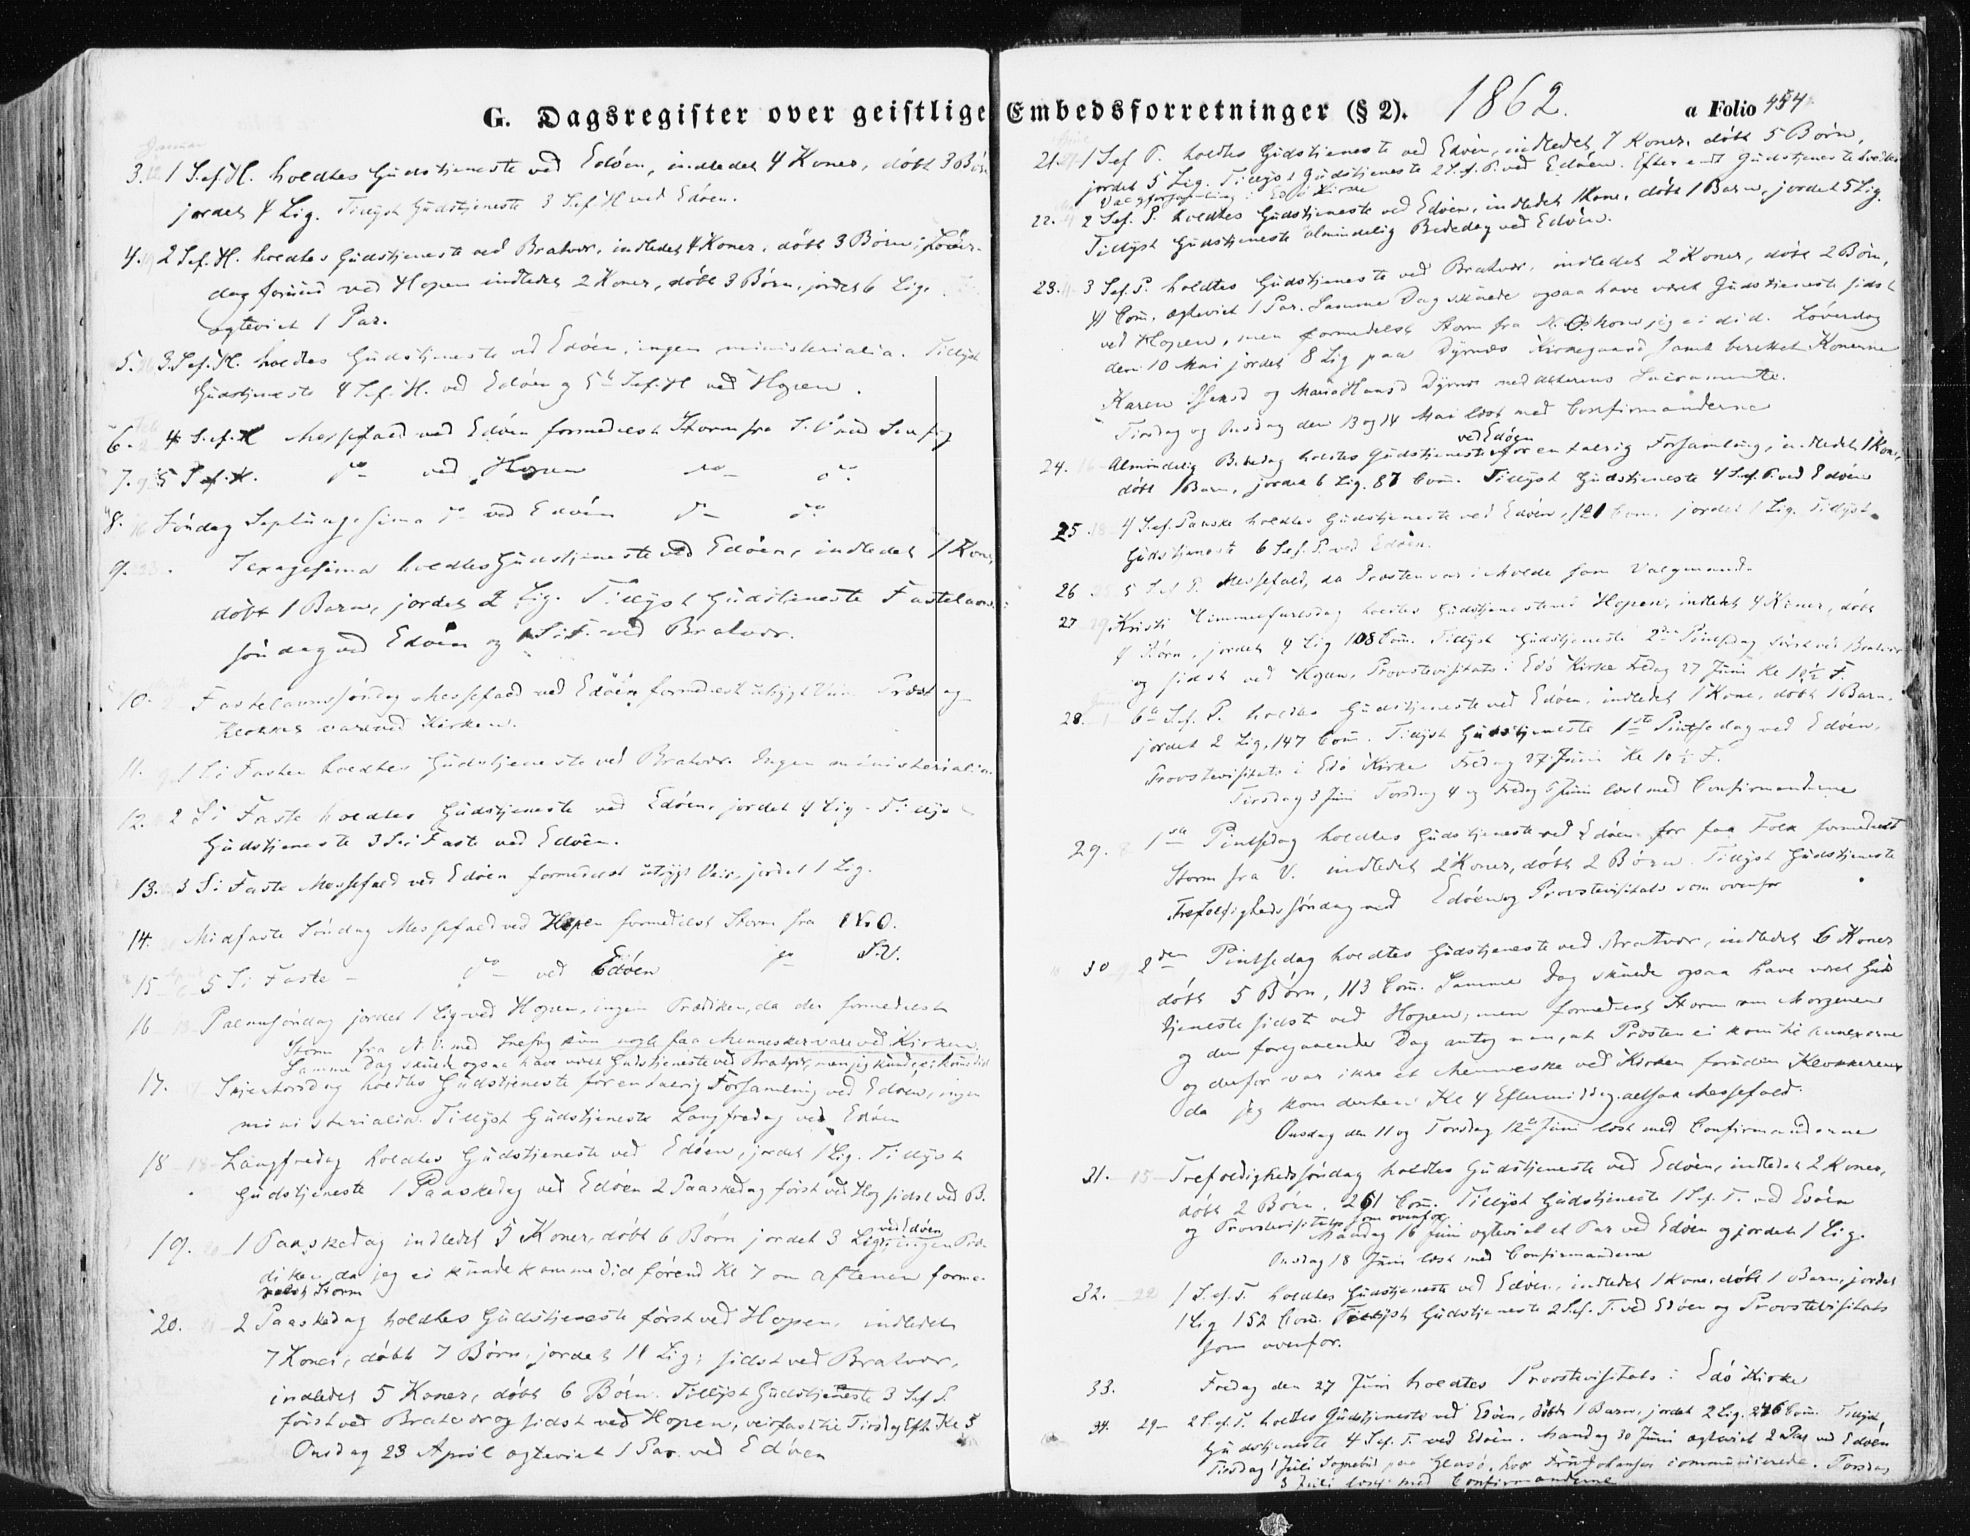 G. Dagsregister over geistlige Embedsforretninger (§ 2). 1862. a Folio 454
3. 1 S.ef.H. holdtes Gudstjeneste ved Edöen, indledet 4 Koner, döbt 3 Börn
jordet 4 Lig. Tillyst Gudstjeneste 3 S.ef.H ved Edöen.
4. 2 S.ef.H. holdtes Gudstjeneste ved Bratvær, indledet 4 Koner, döbt 3 Börn; Löver-
dag forud ved Hopen indledet 2 Koner, döbt 3 Börn, jordet 6 Lig.
egteviet 1 Par.
5. 3.S.ef.H. holdtes Gudstjeneste ved Edöen, ingen ministerialia. Tillyst
Gudstjeneste 4 S.ef.H. ved Edöen og 5te S.ef.H ved Hopen.
6. 4 S.ef.H Messefald ved Edöen formedelst Storm fra S.V med
7. 5 S.ef.H. do ved Hopen do do
8. 16 Söndag Septuagesima do ved Edöen do do
9. 23. Sexagesima holdtes Gudstjeneste ved Edöen, indledet 1 Kone
döbt 1 Barn, jordet 2 Lig. Tillyst Gudstjeneste Fastelavns-
söndag ved Edöen og 1 S i F. ved Bratvær.
10. Fastelavnssöndag Messefald ved Edöen formedelst Veir. Præst og
Klokker vare ved Kirken.
11. 1 S i Fasten holdtes Gudstjeneste ved Bratvær. Ingen ministerialia
12. 2 S i Faste holdtes Gudstjeneste ved Edöen, jordet 4 Lig. Tillyst
Gudstjeneste 3 S i Faste ved Edöen.
13. 3 S i Faste Messefald ved Edöen formedelst Veir, jordet 1 Lig.
14. Midfaste Söndag Messefald ved Hopen formedelst Storm fra N.O.
15 5 S i Faste - do ved Edöen do S.V.
16 Palmesöndag jordet 1 Lig ved Hopen, ingen Prædiken, da der formedelst
Storm fra med Snefog kun nogle faa Mennesker vare ved Kirken.
Samme Dag skulde ogsaa have været Gudstjeneste ved Bratvær, men jeg kunde ei komme did
17. Skjertorsdag holdtes Gudstjeneste for en talrig Forsamling ved Edöen, ingen
ministerialia. Tillyst Gudstjeneste Langfredag ved Edöen
18 - 18 - Langfredag holdtes Gudstjeneste ved Edöen, jordet 1 Lig. Tillyst
Gudstjeneste 1 Paaskedag ved Edöen 2 Paaskedag först ved H og sidst ved B.
19. 20 1 Paaskedag indledet 5 Koner, döbt 6 Börn jordet 3 Lig ved Edöen ingen Præ-
diken, da jeg ei kunde komme did förend Kl 7 om Aftenen forme-
delst Storm
20. 21 2 Paaskedag holdtes Gudstjeneste först ved Hopen, indledet
7 Koner, döbt 7 Börn, jordet 11 Lig; sidst ved Bratvær,
indledet 5 Koner, döbt 6 Börn. Tillyst Gudstjeneste 3 S.ef P.
först ved Bratvær og sidst ved Hopen, Tirsdag Eft. Kl 5
Onsdag 23 April egteviet 1 Par ved Edöen
21. 27. 1 S.ef P. holdtes Gudstjeneste ved Edöen, indledet 7 Koner, döbt 5 Börn,
jordet 5 Lig. Tillyst Gudstjeneste 2 S.ef.P. ved Edöen. Efter endt Gudstjeneste holdtes
Valgforsamling i Edö Kirke
22. 4 2 S.ef. P. holdtes Gudstjeneste ved Edöen, indledet 1 Kone, döbt 1 Barn, jordet 5 Lig.
Tillyst Gudstjeneste almindelig Bededag ved Edöen.
23. 3 S.ef P. holdtes Gudstjeneste ved Bratvær, indledet 2 Koner, döbt 2 Börn,
41 Com. egteviet 1 Par. Samme Dag skulde ogsaa have været Gudstjeneste sidst
ved Hopen, men formedelst Storm fra N.O. kom jeg ei did. Löverdag
den 10 Mai jordet 8 Lig paa Dyrnæs Kirkegaard samt berettet Konerne
Karen og Maria Hansd Dyrnes med Alterens Sacramente.
Tirsdag og Onsdag den 13 og 14 Mai læst med Confirmanderne
24. 16 Almindelig Bededag holdtes Gudstjeneste ved Edöen for en talrig Forsamling, indledet 1 Kone,
döbt 1 Barn, jordet 6 Lig. 87 Com. Tillyst Gudstjeneste 4 S.ef P. ved Edöen
25. 18 - 4 S.ef.Paaske holdtes Gudstjeneste ved Edöen, 121 Com. jordet 1 Lig. Tillyst
Gudstjeneste 6 S.ef. P. ved Edöen.
26 25 5 S.ef P. Messefald, da Provsten var i Molde som Valgmand.
27 29 Kristi Himmelfartsdag holdtes Gudstjeneste ved Hopen, indledet 4 Koner, döbt
4 Börn, jordet 4 Lig 108 Com. Tillyst Gudstjeneste 2den Pintsdag först ved Bratvær
og sidst ved Hopen, Provstevisitats i Edö Kirke Fredag 27 Juni Kl 10½ F.
28. 1 6te S.ef. P. holdtes Gudstjeneste ved Edöen, indledet 1 Kone, döbt 1 Barn,
jordet 2 Lig, 147 Com. Tillyst Gudstjeneste 1ste Pintsedag ved Edöen.
Provstevisitats i Edö Kirke Fredag 27 Juni Kl 10½ F.
Tirsdag 3 Juni Torsdag 4 og Fredag Juni læst med Confirmanderne
29. 8 1ste Pintsedag holdtes Gudstjeneste ved Edöen for faa Folk formedelst
Storm fra V. indledet 2 Koner, döbt 2 Börn. Tillyst Gudstjeneste
Trefoldighedssöndag ved Edöen og Provstevisitats som ovenfor
30 9 2den Pintsedag holdtes Gudstjeneste ved Bratvær, indledet 6 Koner
döbt 5 Börn, 113 Com. Samme Dag skulde ogsaa have været Guds
tjeneste sidst ved Hopen, men formedelst Storm om Morgenen
og den foregaaende Dag antog man, at Præsten ei kom til Annexerne
og derfor var ikke et Menneske ved Kirken foruden Klokkeren
da jeg kom derhen Kl 4 Eftermiddag, altsaa Messefald.
Onsdag den 11 og Torsdag 12te Juni læst med Confirmanderne
31. - 15 - Trefoldighedssöndag holdtes Gudstjeneste ved Edöen, indledet 2 Koner,
döbt 2 Börn, 261 Com. Tillyst Gudstjeneste 1 S.ef. T. ved Edöen
og Provstevisitats som ovenfor
Mandag 16 Juni egteviet et Par ved Edöen og jordet 1 Lig.
Onsdag 18 Juni læst med Confirmanderne
32. - 22 1 S.ef.T. holdtes Gudstjeneste ved Edöen, indledet 1 Kone, döbt 1 Barn, jordet
1 Lig 152 Com. Tillyst Gudstjeneste 2 S.ef. T. ved Edöen og Provstevisitats
som ovenfor.
33. Fredag den 27 Juni holdtes Provstevisitats i Edö Kirke
34. 29 - 2 S.ef.T. holdtes Gudstjeneste ved Edöen, döbt 1 Barn, jordet 2 Lig. 276 Com. Tillyst
Gudstjeneste 4 S.ef. T. ved Edöen. Mandag 30 Juni egteviet 2 Par ved Edöen
Tirsdag 1 Juli Sognebud paa hvor communicerede. Torsdag
3 Juli læst med Confirmanderne